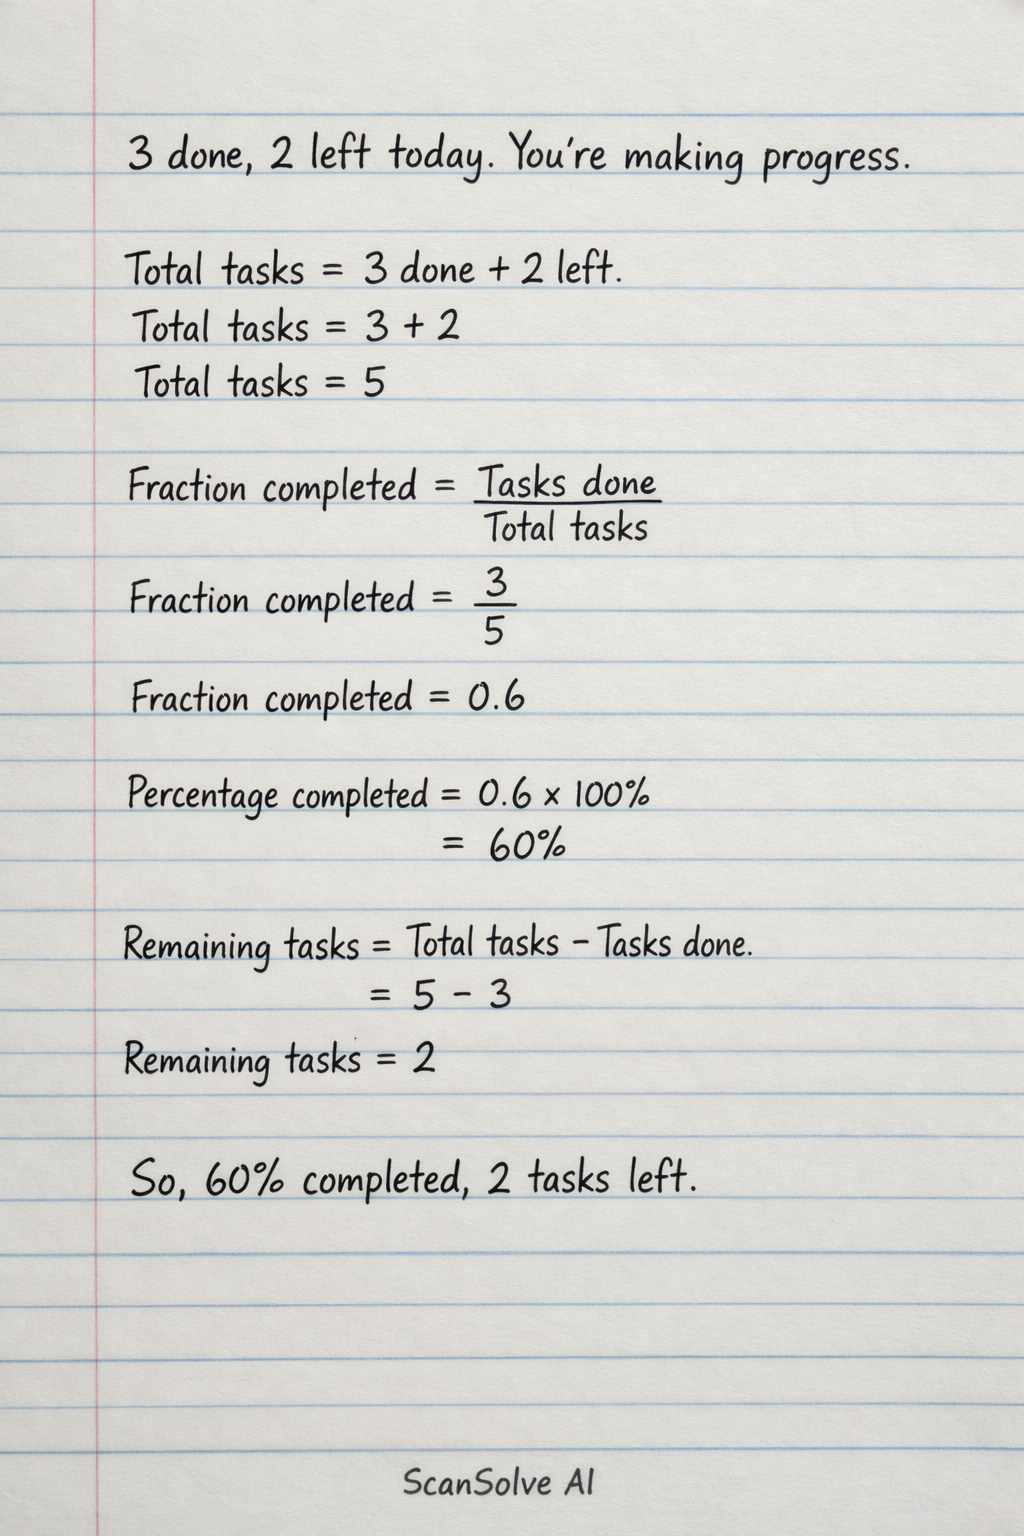 3 done, 2 left today. You're making progress.
Total tasks = 3 done + 2 left.
Total tasks = 3 + 2
Total tasks = 5
Fraction completed = Tasks done
Total tasks
Fraction completed = 3
5
Fraction completed = 0.6
Percentage completed = 0.6 × 100%
= 60%
Remaining tasks = Total tasks - Tasks done.
= 5 - 3
Remaining tasks = 2
So, 60% completed, 2 tasks left.
ScanSolve AI